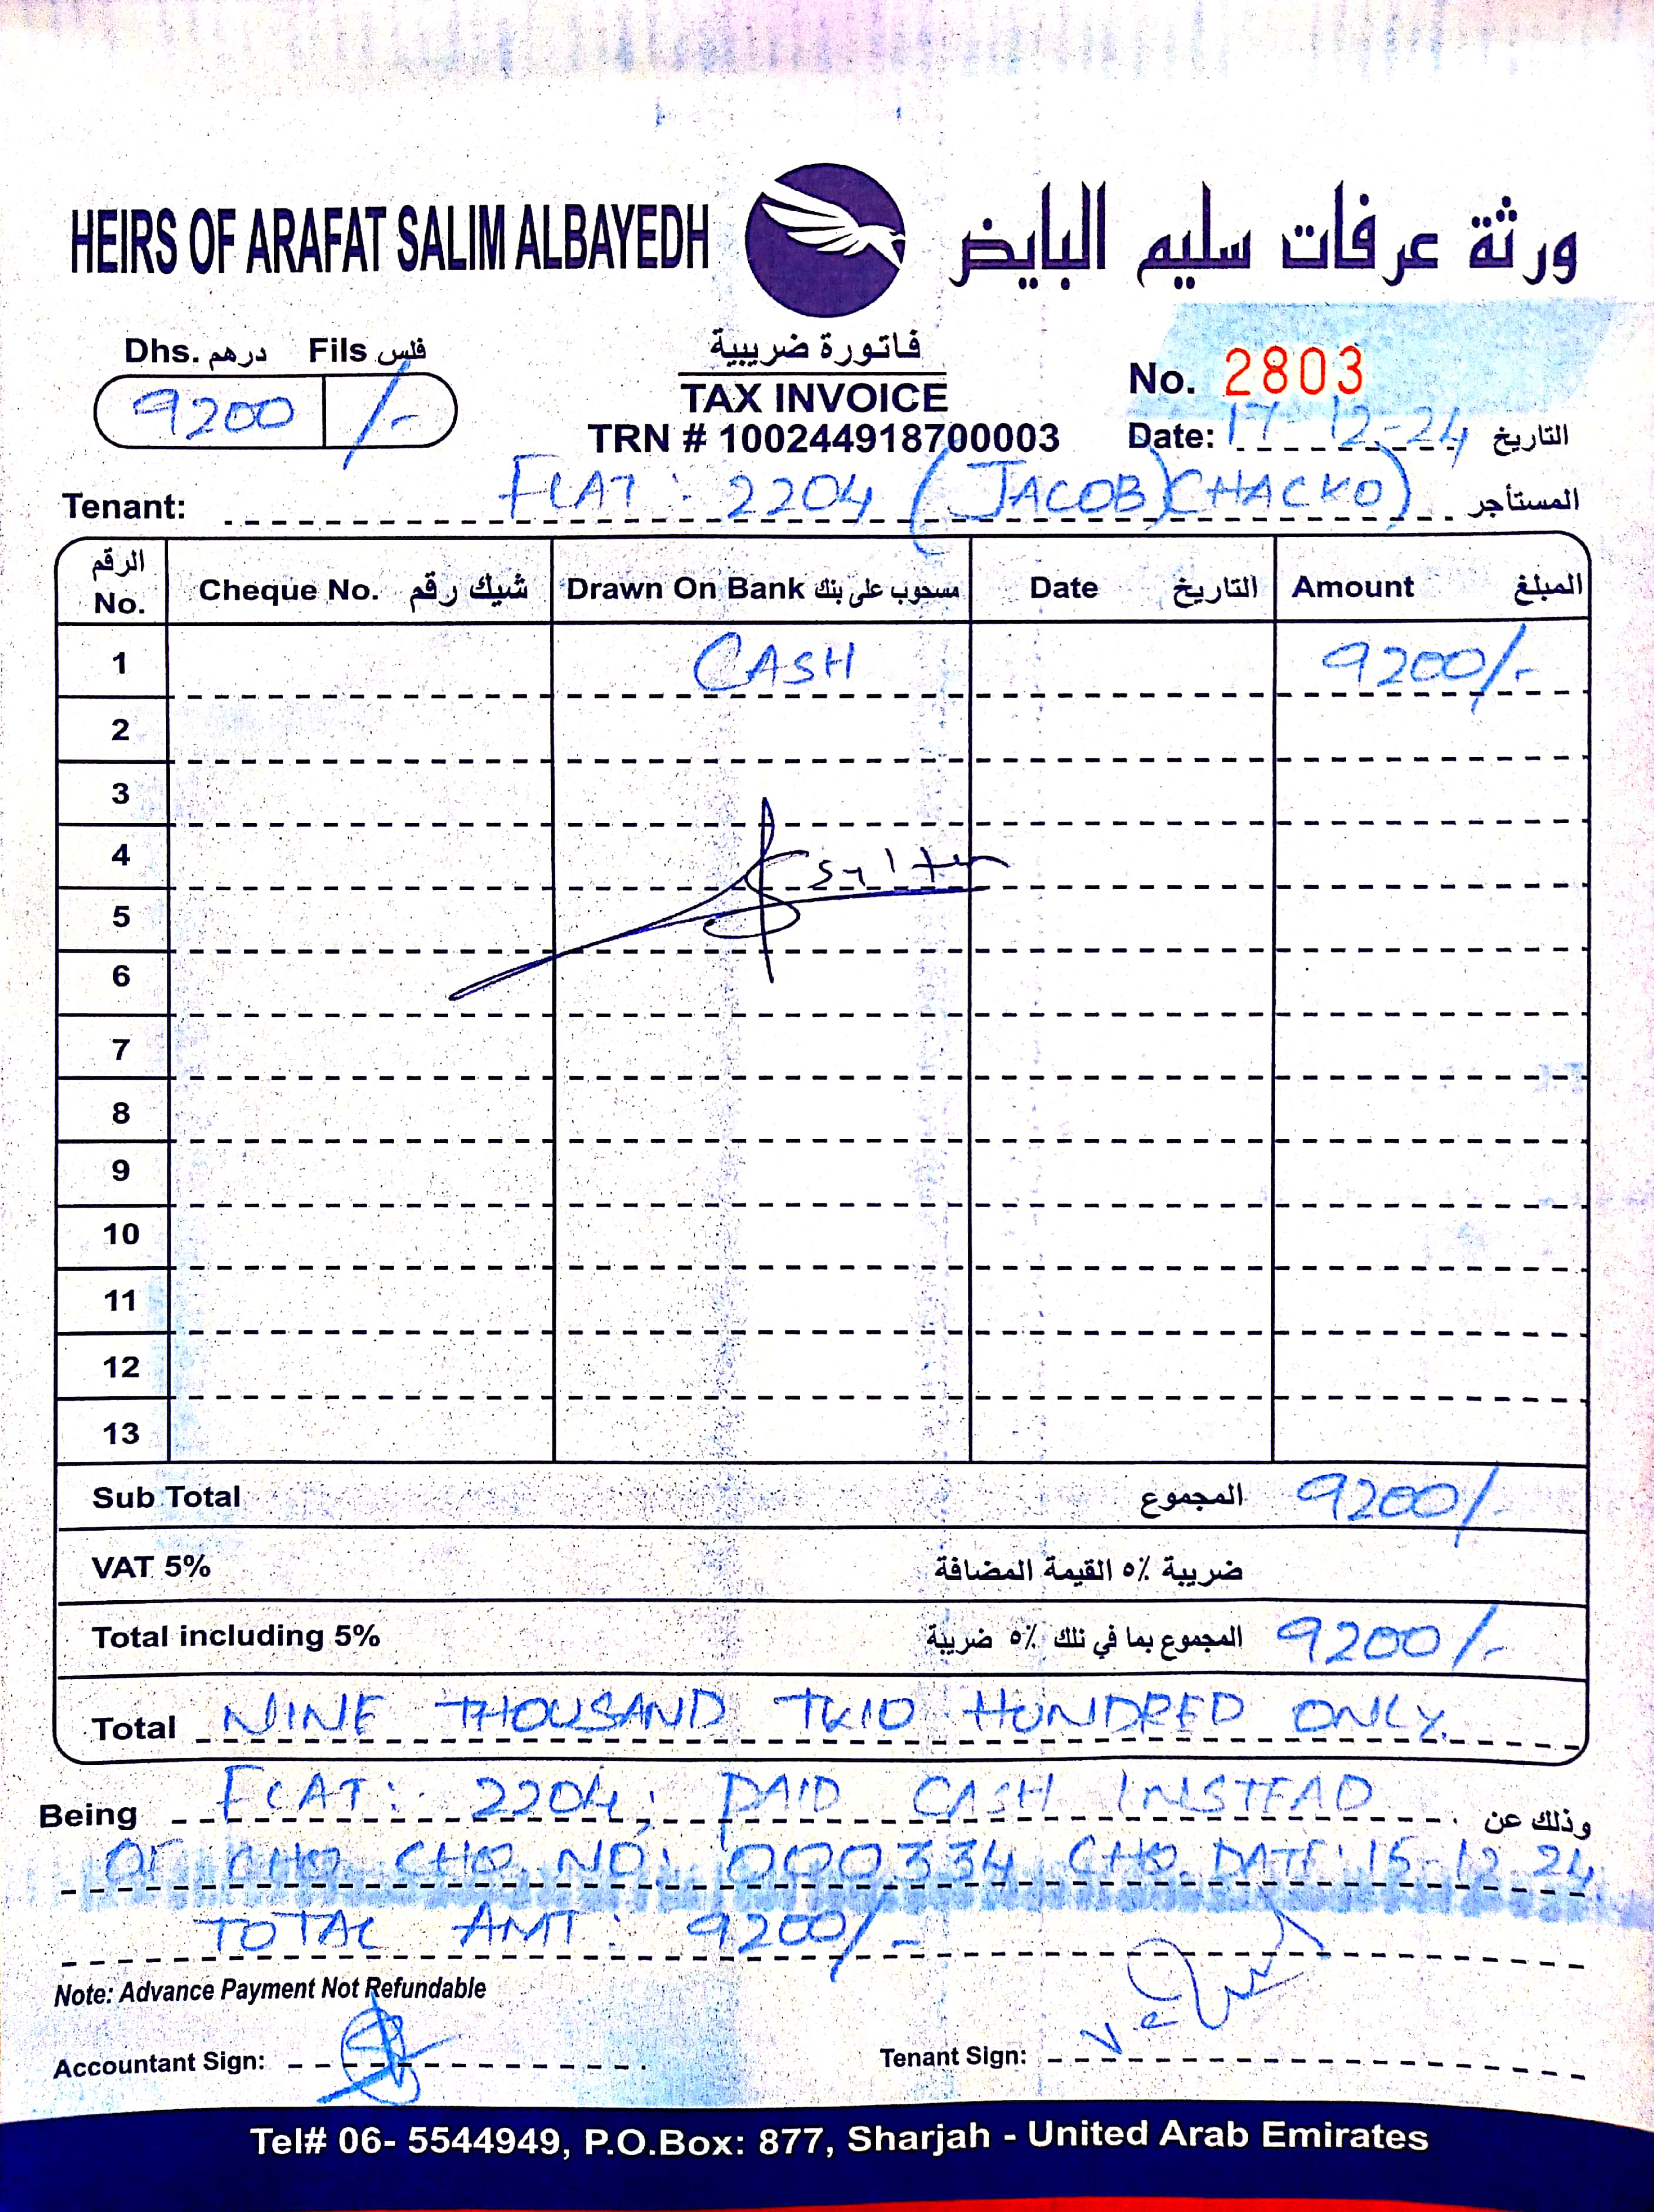 HEIRS OF ARAFAT SALIM ALBAYEDH
ورثة عرفات سليم البايض
Dhs. درهم Fils فلس
9200 /-
فاتورة ضريبية
TAX INVOICE
TRN # 100244918700003
No. 2803
Date: 17-12-24 التاريخ
Tenant: FLAT : 2204 (JACOB CHACKO) المستأجر
الرقم No. Cheque No. شيك رقم Drawn On Bank مسحوب على بنك Date التاريخ Amount المبلغ
1 CASH 9200/-
2
3
4
5
6
7
8
9
10
11
12
13
Sub Total المجموع 9200/-
VAT 5% ضريبة ٥٪ القيمة المضافة
Total including 5% المجموع بما في ذلك ٥٪ ضريبة 9200/-
Total NINE THOUSAND TWO HUNDRED ONLY.
Being FLAT: 2204, PAID CASH INSTEAD وذلك عن
OF CHQ CHQ. NO: 000334 CHQ. DATE: 15-12-24
TOTAL AMT : 9200/-
Note: Advance Payment Not Refundable
Accountant Sign:
Tenant Sign:
Tel# 06- 5544949, P.O.Box: 877, Sharjah - United Arab Emirates